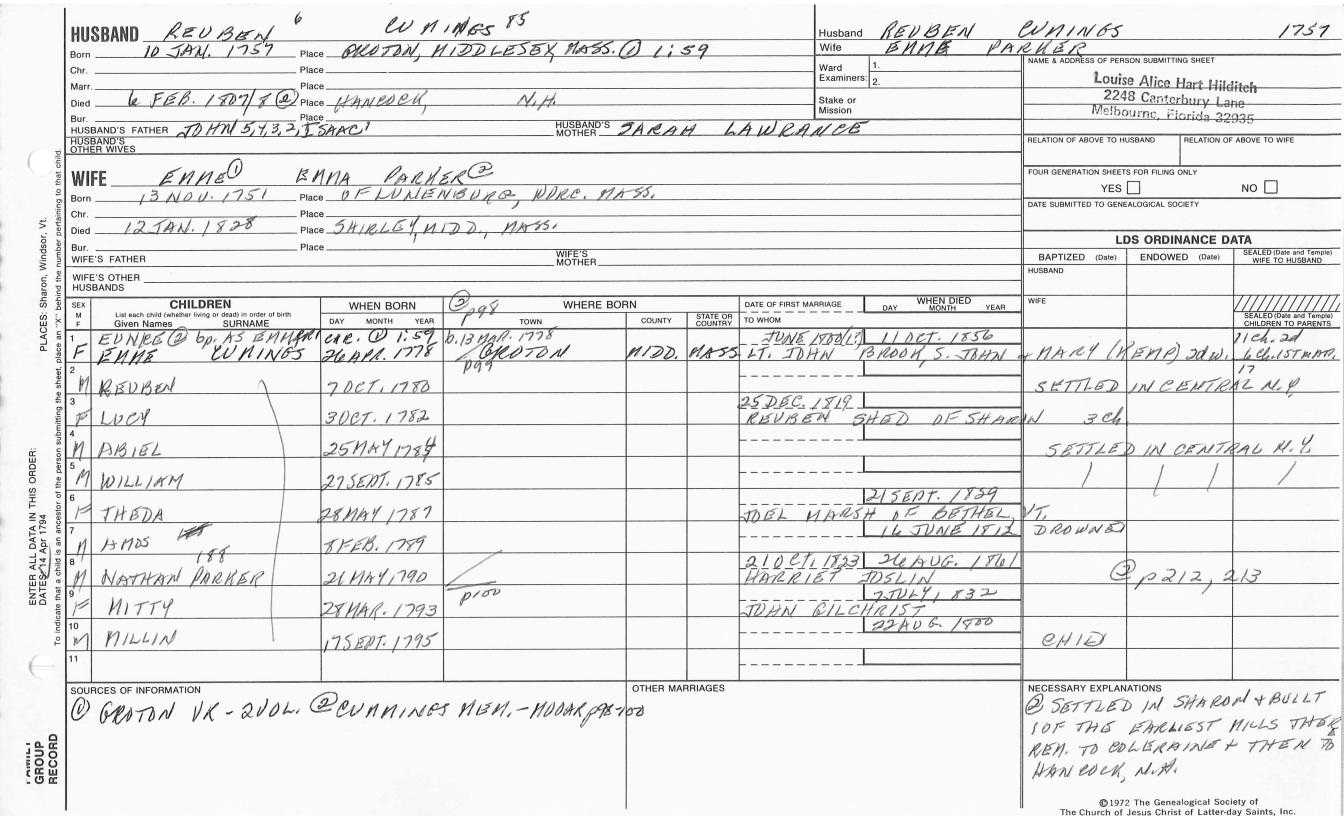 HUSBAND REUBEN 6 CUMINGS 85
Born 10 JAN. 1757 Place GROTON, MIDDLESEX, MASS. ① 1:59
Chr. Place
Marr. Place
Died 6 FEB. 1807/8 ② Place HANCOCK, N.H.
Bur. Place
HUSBAND'S FATHER JOHN 5,4,3,2, ISAAC1 HUSBAND'S MOTHER SARAH LAWRANCE
HUSBAND'S OTHER WIVES
WIFE EMME① EMMA PARKER②
Born 13 NOV. 1751 Place OF LUNENBURG, WORC. MASS.
Chr. Place
Died 12 JAN. 1828 Place SHIRLEY, MIDD., MASS.
Bur. Place
WIFE'S FATHER WIFE'S MOTHER
WIFE'S OTHER HUSBANDS
Husband REUBEN CUMINGS 1757
Wife EMME PARKER
Ward 1.
Examiners: 2.
Stake or Mission
NAME & ADDRESS OF PERSON SUBMITTING SHEET
Louise Alice Hart Hilditch
2248 Canterbury Lane
Melbourne, Florida 32935
RELATION OF ABOVE TO HUSBAND RELATION OF ABOVE TO WIFE
FOUR GENERATION SHEETS FOR FILING ONLY
YES NO
DATE SUBMITTED TO GENEALOGICAL SOCIETY
LDS ORDINANCE DATA
BAPTIZED (Date) ENDOWED (Date) SEALED (Date and Temple) WIFE TO HUSBAND
HUSBAND
WIFE
SEALED (Date and Temple) CHILDREN TO PARENTS
SEX M F CHILDREN WHEN BORN ② p98 WHERE BORN DATE OF FIRST MARRIAGE WHEN DIED
List each child (whether living or dead) in order of birth
Given Names SURNAME DAY MONTH YEAR TOWN COUNTY STATE OR COUNTRY TO WHOM DAY MONTH YEAR
1 EUNICE ② bp. AS ① 1:59 b. 13 MAR. 1778 JUNE 11 OCT. 1856 11 ch. 2d
F EMME CUMINGS 26 APR. 1778 GROTON MIDD. MASS LT. JOHN BROOK, S. JOHN + MARY (KEMP) 2d w. 6 ch. 1ST MAR.
p99 17
2
M REUBEN 7 OCT. 1780 SETTLED IN CENTRAL N.Y.
3 25 DEC. 1819
F LUCY 3 OCT. 1782 REUBEN SHED OF SHARON 3 ch
4
M ABIEL 25 MAY 1784 SETTLED IN CENTRAL N.Y.
5
M WILLIAM 27 SEPT. 1785
6 21 SEPT. 1829
F THEDA 28 MAY 1787 JOEL MARSH OF BETHEL, VT.
7 16 JUNE 1812 DROWNED
M AMOS 8 FEB. 1789
188
8 21 OCT. 1823 26 AUG. 1861
M NATHAN PARKER 21 MAY 1790 HARRIET JOSLIN ② p212, 213
p100
9 7 JULY, 1832
F MITTY 28 MAR. 1793 JOHN GILCHRIST
10 22 AUG. 1800
M MILLIN 17 SEPT. 1795 CHILD
11
SOURCES OF INFORMATION
① GROTON VR - 2 VOL. ② CUMMINGS MEM. - MOOAR p98-100
OTHER MARRIAGES
NECESSARY EXPLANATIONS
② SETTLED IN SHARON + BUILT
1 OF THE EARLIEST MILLS THERE
REM. TO COLERAINE + THEN TO
HANCOCK, N.H.
©1972 The Genealogical Society of
The Church of Jesus Christ of Latter-day Saints, Inc.
PLACES: Sharon, Windsor, Vt.
ENTER ALL DATA IN THIS ORDER:
DATES: 14 Apr 1794
To indicate that a child is an ancestor of the person submitting the sheet, place an "X" behind the number pertaining to that child.
FAMILY
GROUP
RECORD